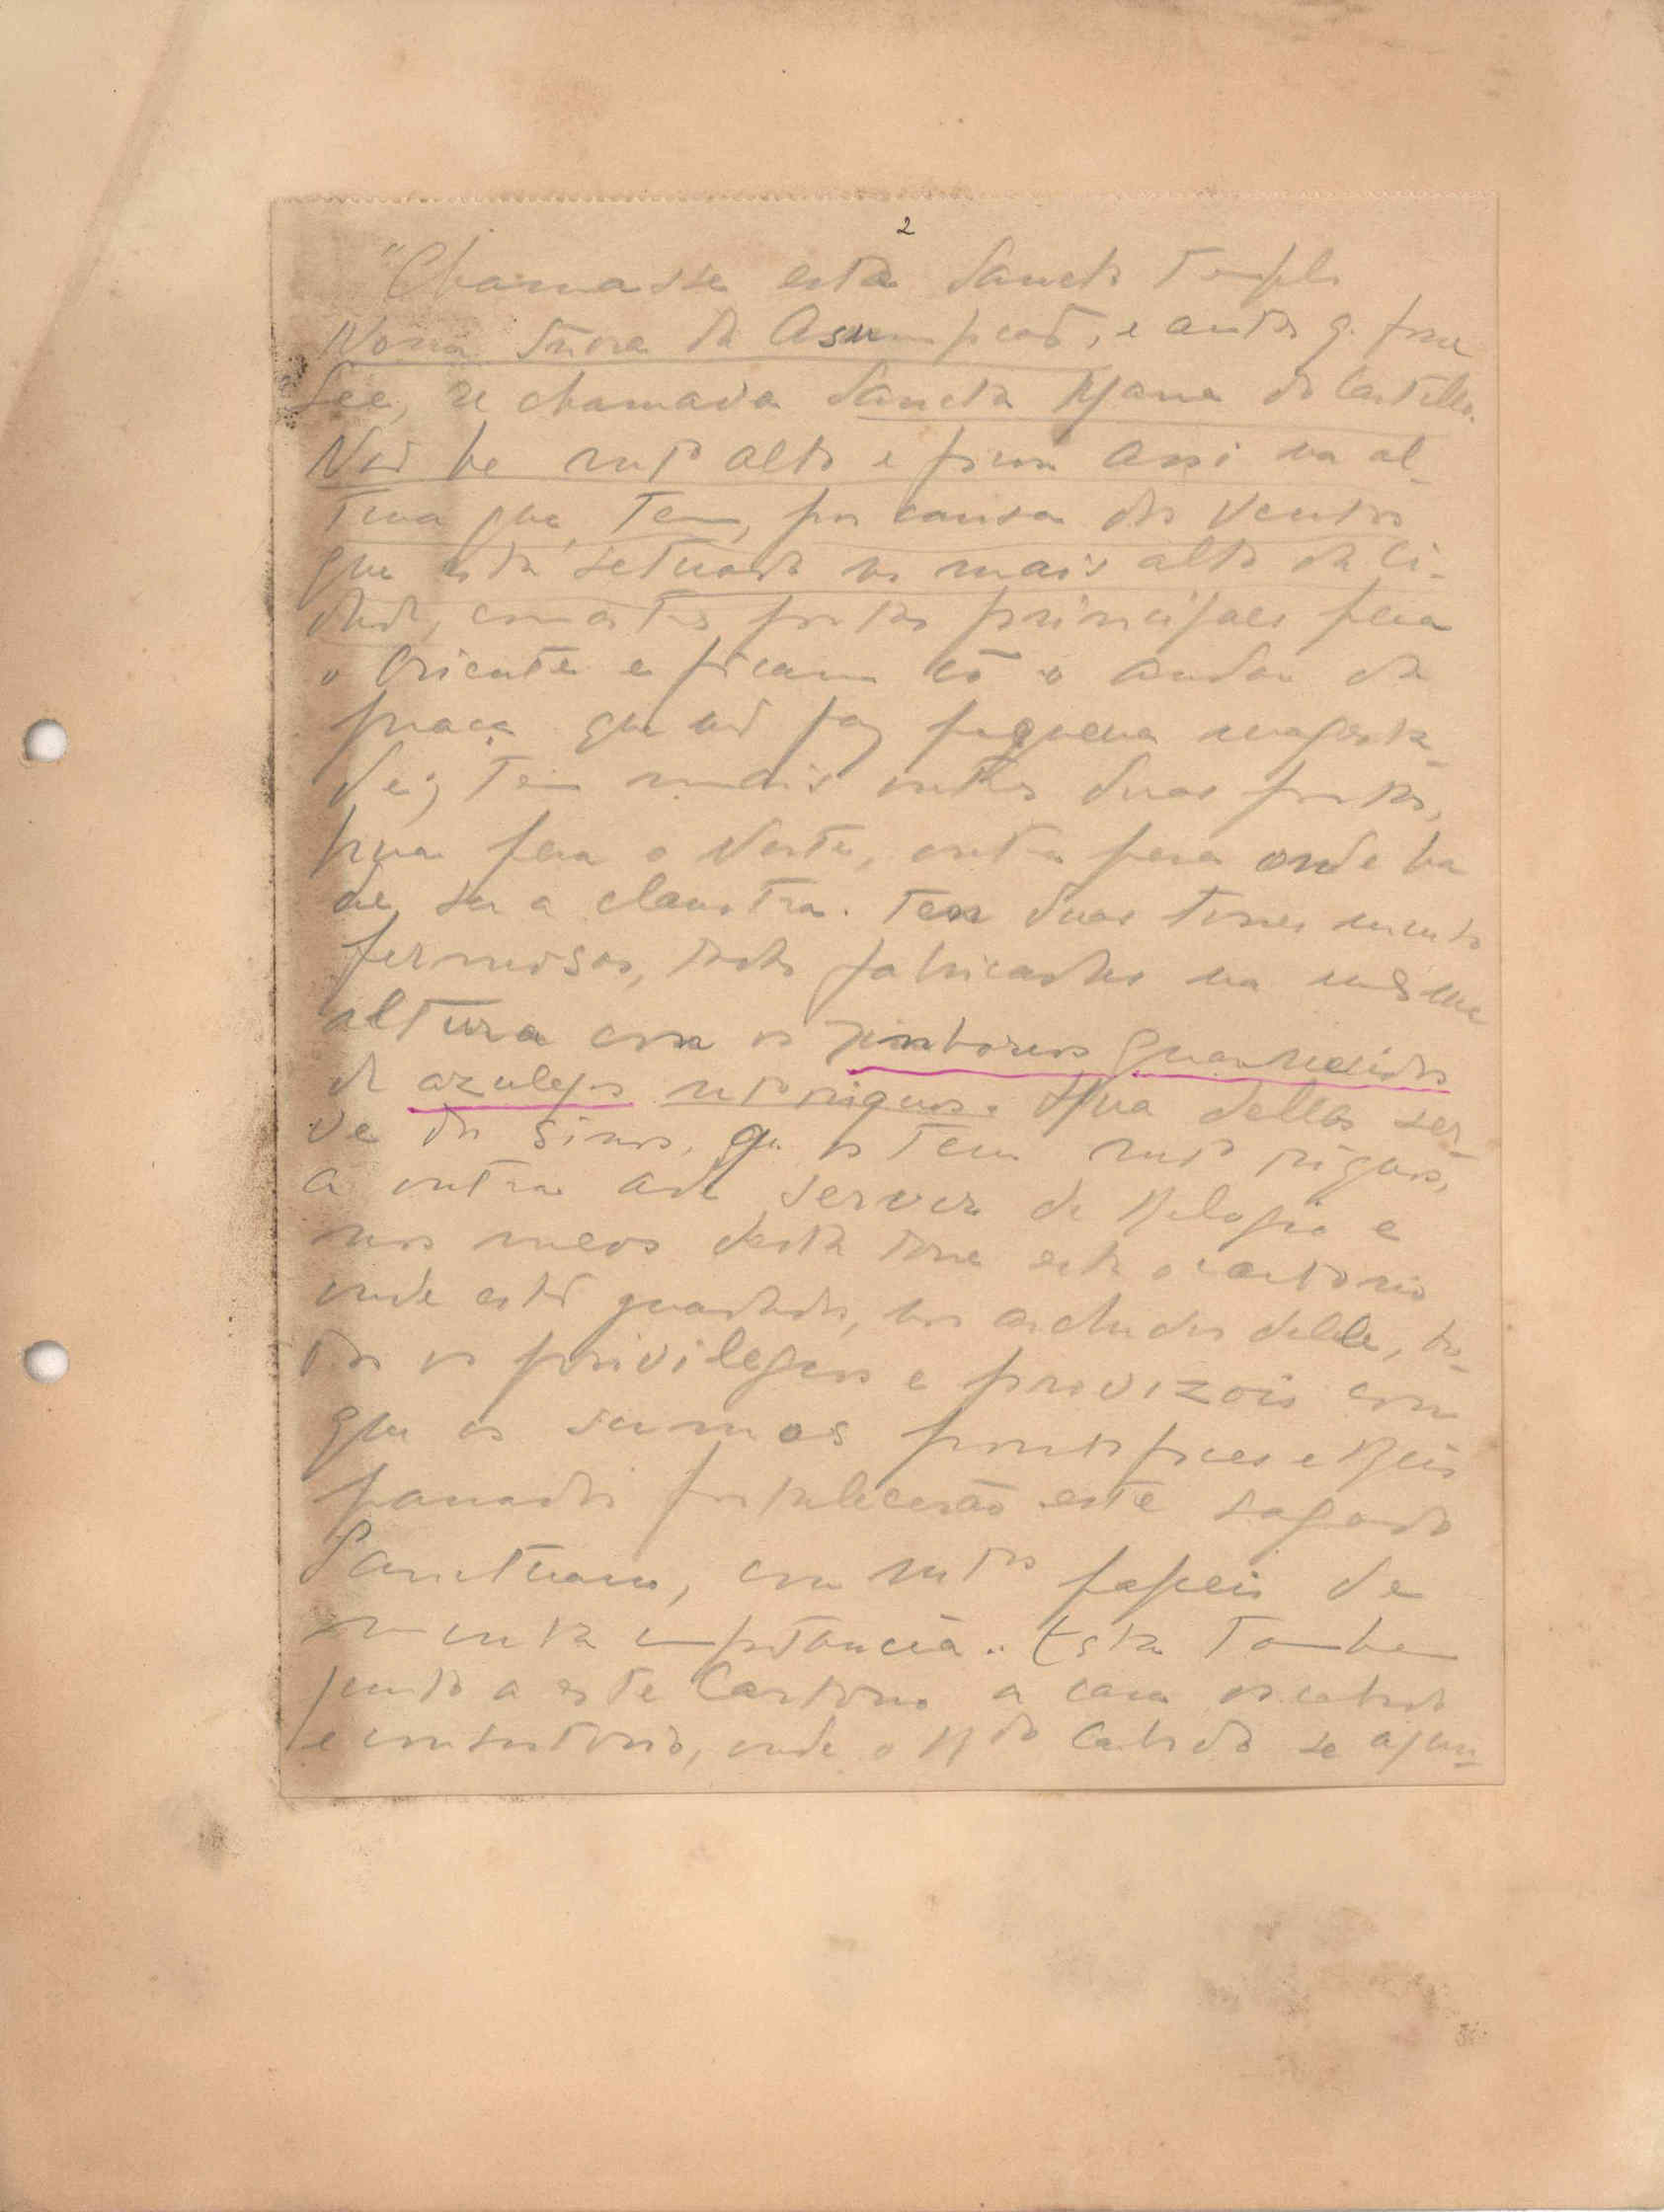 2
"Chamasse este Sancto Templo
Nossa Sñora da Asumpçaõ, e antes q. fosse
See, se chamava Sancta Maria do Castello.
Naõ he mtº alto e ficou assi na al-
tura que tem, por causa dos ventos
que está setuado no mais alto da Ci-
dade, com as tres portas principaes pera
o Oriente e ficam cõ o andar da
praça que naõ faz pequena magesta-
de; tem mais outras duas portas,
hua pera o Norte, outra pera onde ha
de ser a claustra. Tem duas torres muito
fermosas, todas fabricadas na mesma
altura com os zimborios guarnecidos
de azulejos mtº riquos. Hua dellas ser-
ve dos sinos, q. os tem mtº riquos,
a outra ade servir de Relogio e
nos meos desta torre está o cartorio
onde estaõ guardados, nos archivos delle, to-
dos os privilegios e provizois com
que os sumos pontifices e Reis
passados fortalecerão este sagrado
Sanctuario, com mtos papeis de
muita importancia. Esta tambem
junto a este Cartorio a casa do cabido
e consistorio, onde o Rdo Cabido se ajun-